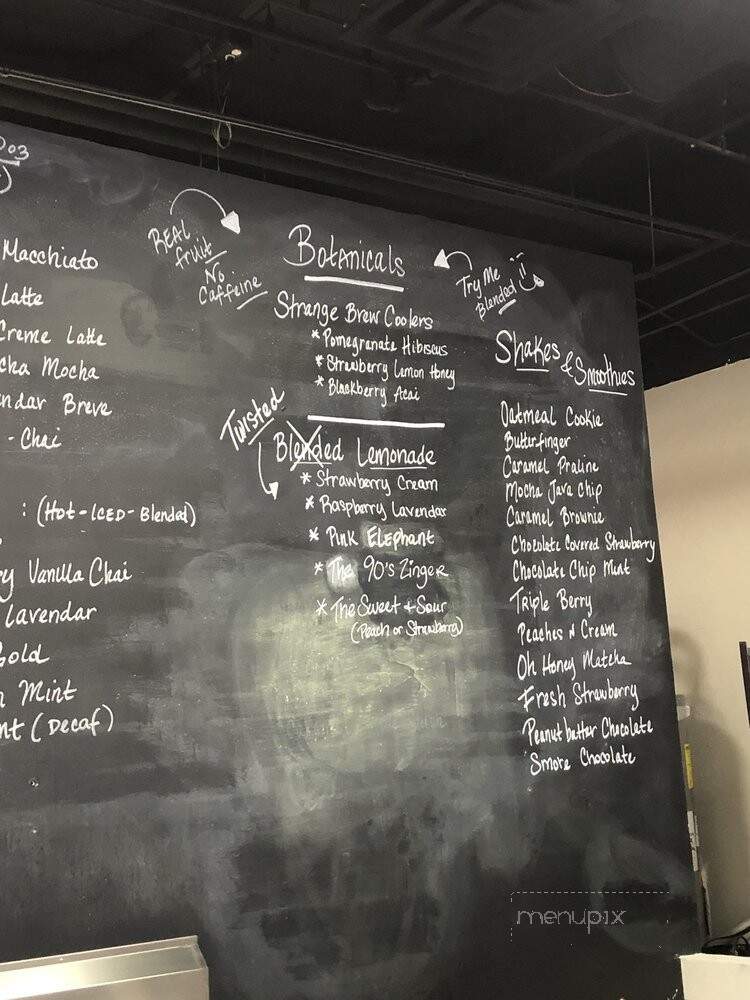 Macchiato
Latte
Creme Latte
cha Mocha
endar Breve
- Chai
: (Hot - ICED - Blended)
ry Vanilla Chai
lavendar
Gold
n Mint
nt (Decaf)
REAL
fruit
No
Caffeine
Botanicals
Try Me
Blended
Strange Brew Coolers
* Pomegranate Hibiscus
* Strawberry Lemon Honey
* Blackberry Acai
Twisted
Blended Lemonade
* Strawberry Cream
* Raspberry Lavendar
* Pink Elephant
* The 90's Zinger
* The Sweet & Sour
(Peach or Strawberry)
Shakes & Smoothies
Oatmeal Cookie
Butterfinger
Caramel Praline
Mocha Java Chip
Caramel Brownie
Chocolate Covered Strawberry
Chocolate Chip Mint
Triple Berry
Peaches N Cream
Oh Honey Matcha
Fresh Strawberry
Peanutbutter Chocolate
Smore Chocolate
menupix